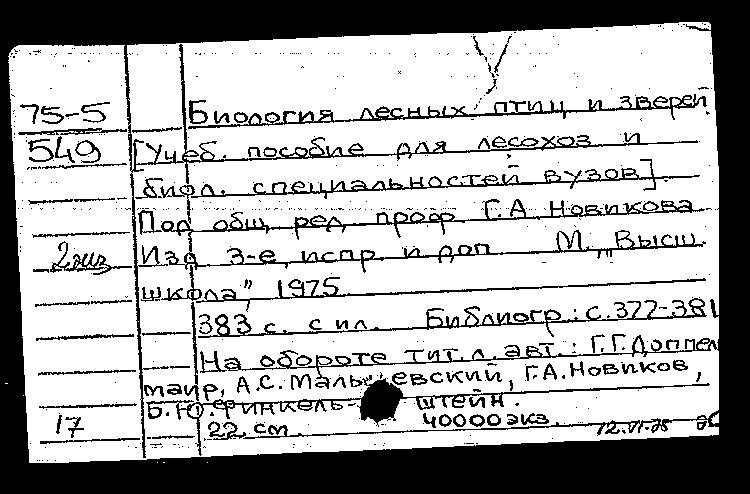 75-5 Биология лесных птиц и зверей
549 [Учеб. пособие для лесохоз и
биол. специальностей вузов].
Под общ. ред. проф. Г.А. Новикова
2 экз Изд 3-е, испр. и доп М., „Высш.
школа", 1975
383 с. с ил. Библиогр.: с. 377-381
На обороте тит. л. авт.: Г.Г. Доппель
маир, А.С. Мальчевский, Г.А. Новиков,
Б.Ю. Финкель- штейн.
17 22 см. 40000 экз. 12.VI.75